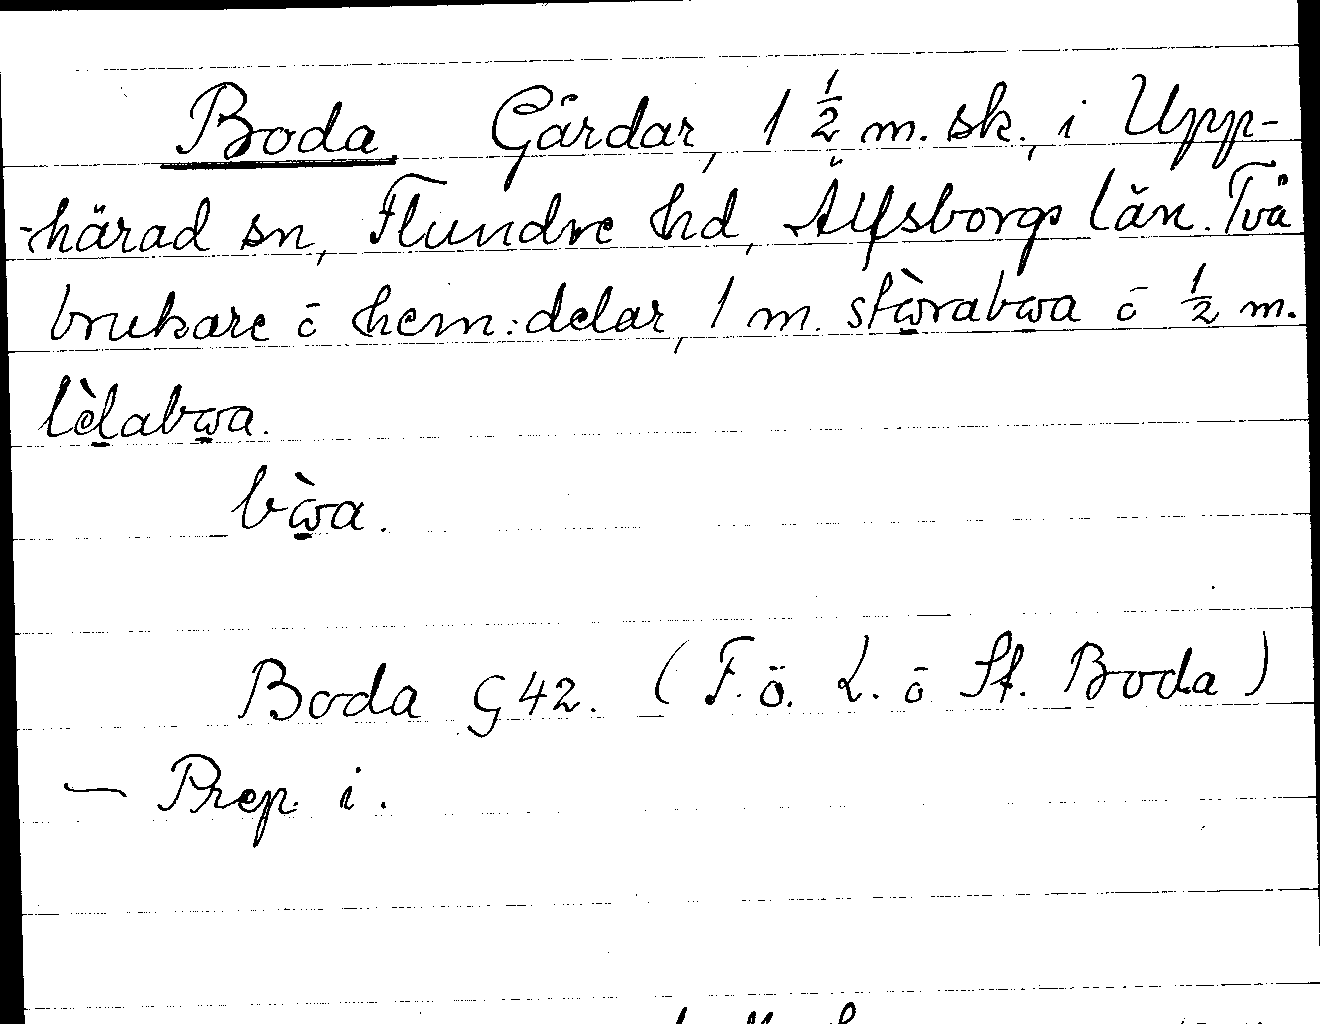 Boda Gårdar, 1 ½ m. sk., i Upp-
-härad sn, Flundre hd, Älfsborgs län. Två
brukare ō hem:delar, 1 m. stɷ̀rabɷa ō ½ m.
lèlabɷa.
bɷ̀a.
Boda G 42. (F. ö. L. ō St. Boda)
— Prep. i.